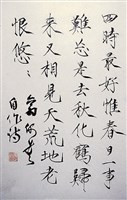 四時最好惟春日一事
難忘是去秋化鶴歸
來又相見天荒地老
恨悠悠
自作詩